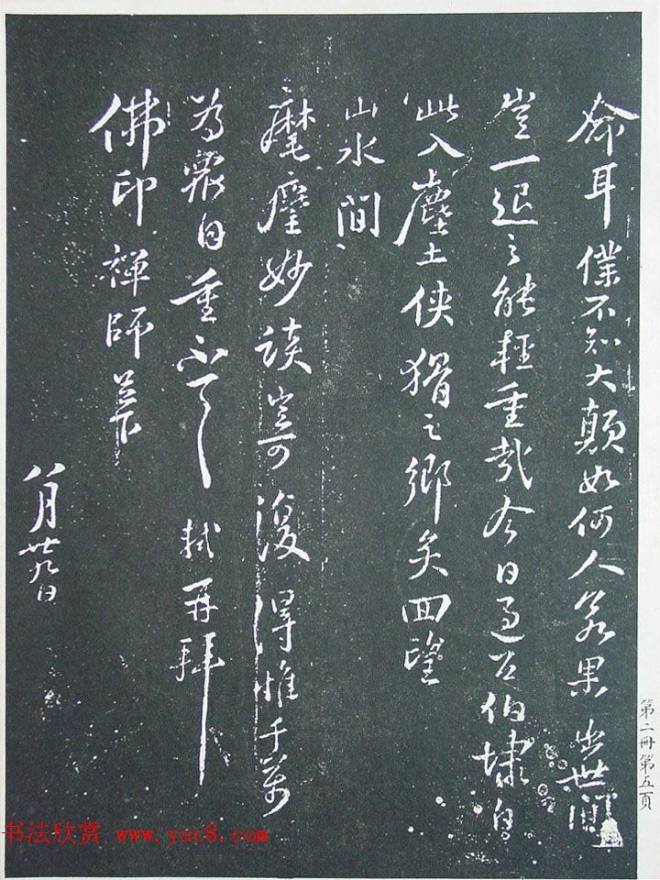 命耳僕不知大顛如何人若果出世間
豈一退之能輕重哉今日過召伯埭自
此入塵土俠猾之鄉矣回望
山水間
麾麈妙談豈可復得惟千萬
為衆自重不一一軾再拜
佛印禪師足下
八月廿九日
第二冊第五頁
书法欣赏 www.yac8.com